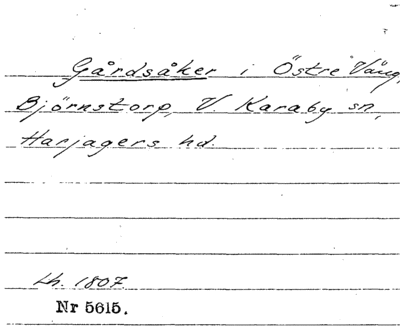 Gårdsåker i Östre Vång,
Björnstorp, V. Karaby sn,
Harjagers hd.
Lh. 1807.
Nr 5615.